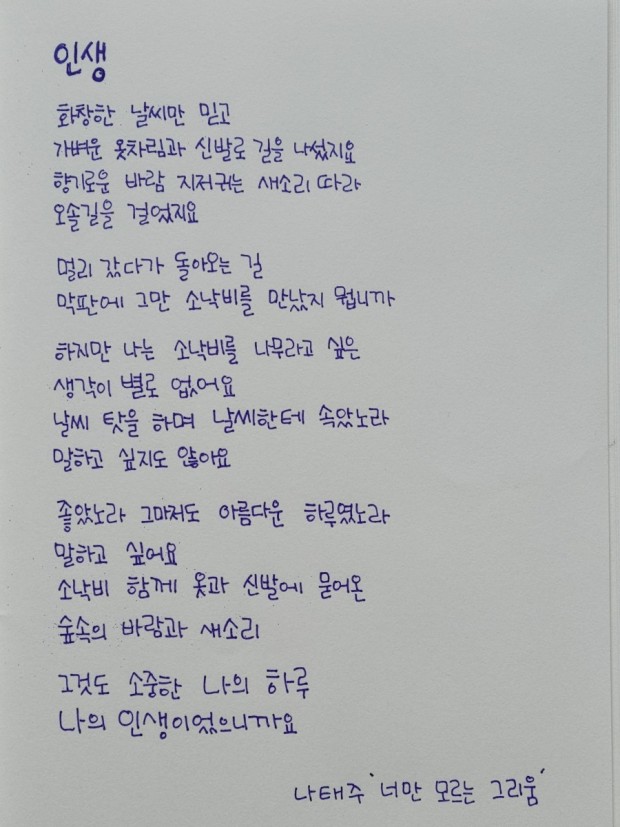 인생
화창한 날씨만 믿고
가벼운 옷차림과 신발로 길을 나섰지요
향기로운 바람 지저귀는 새소리 따라
오솔길을 걸었지요
멀리 갔다가 돌아오는 길
막판에 그만 소낙비를 만났지 뭡니까
하지만 나는 소낙비를 나무라고 싶은
생각이 별로 없어요
날씨 탓을 하며 날씨한테 속았노라
말하고 싶지도 않아요
좋았노라 그마저도 아름다운 하루였노라
말하고 싶어요
소낙비 함께 옷과 신발에 묻어온
숲속의 바람과 새소리
그것도 소중한 나의 하루
나의 인생이었으니까요
나태주 '너만 모르는 그리움'